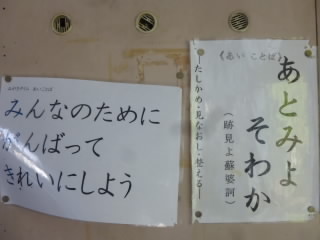 みんなのために
がんばって
きれいにしよう
《あいことば》
あとみよ
そわか
(跡見よ蘇婆訶)
―たしかめ・見なおし・整える―